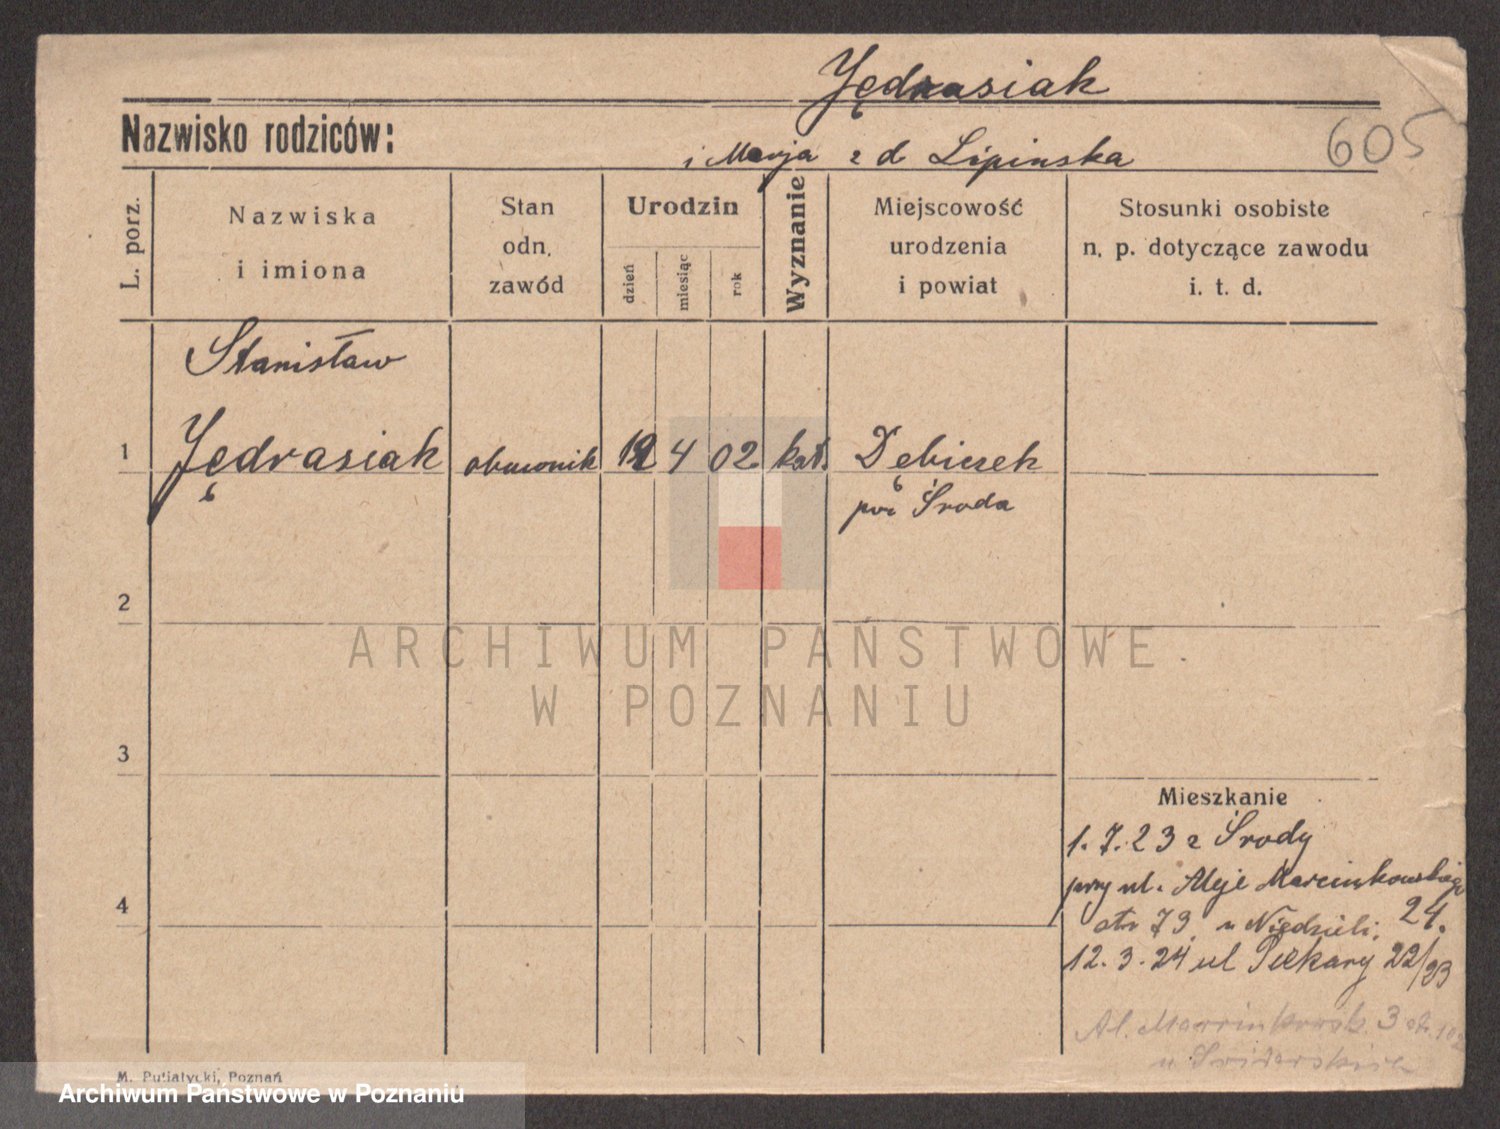 Jędrasiak
Nazwisko rodziców:
i Marja z d Lipinska
605
L. porz.
Nazwiska
i imiona
Stan
odn.
zawód
Urodzin
dzień
miesiąc
rok
Wyznanie
Miejscowość
urodzenia
i powiat
Stosunki osobiste
n. p. dotyczące zawodu
i. t. d.
Stanisław
1 Jędrasiak obuwnik 4 02. kat. Dębiczek
pow Środa
2
3
4
Mieszkanie
1.7.23 z Środy
przy ul. Aleje Marcinkowskiego
24.
79. u Niedzieli.
12.3.24 ul Piekary 22/23
Al. Marcinkowsk. 3
u
M. Putiatycki, Poznań
ARCHIWUM PAŃSTWOWE
W POZNANIU
Archiwum Państwowe w Poznaniu